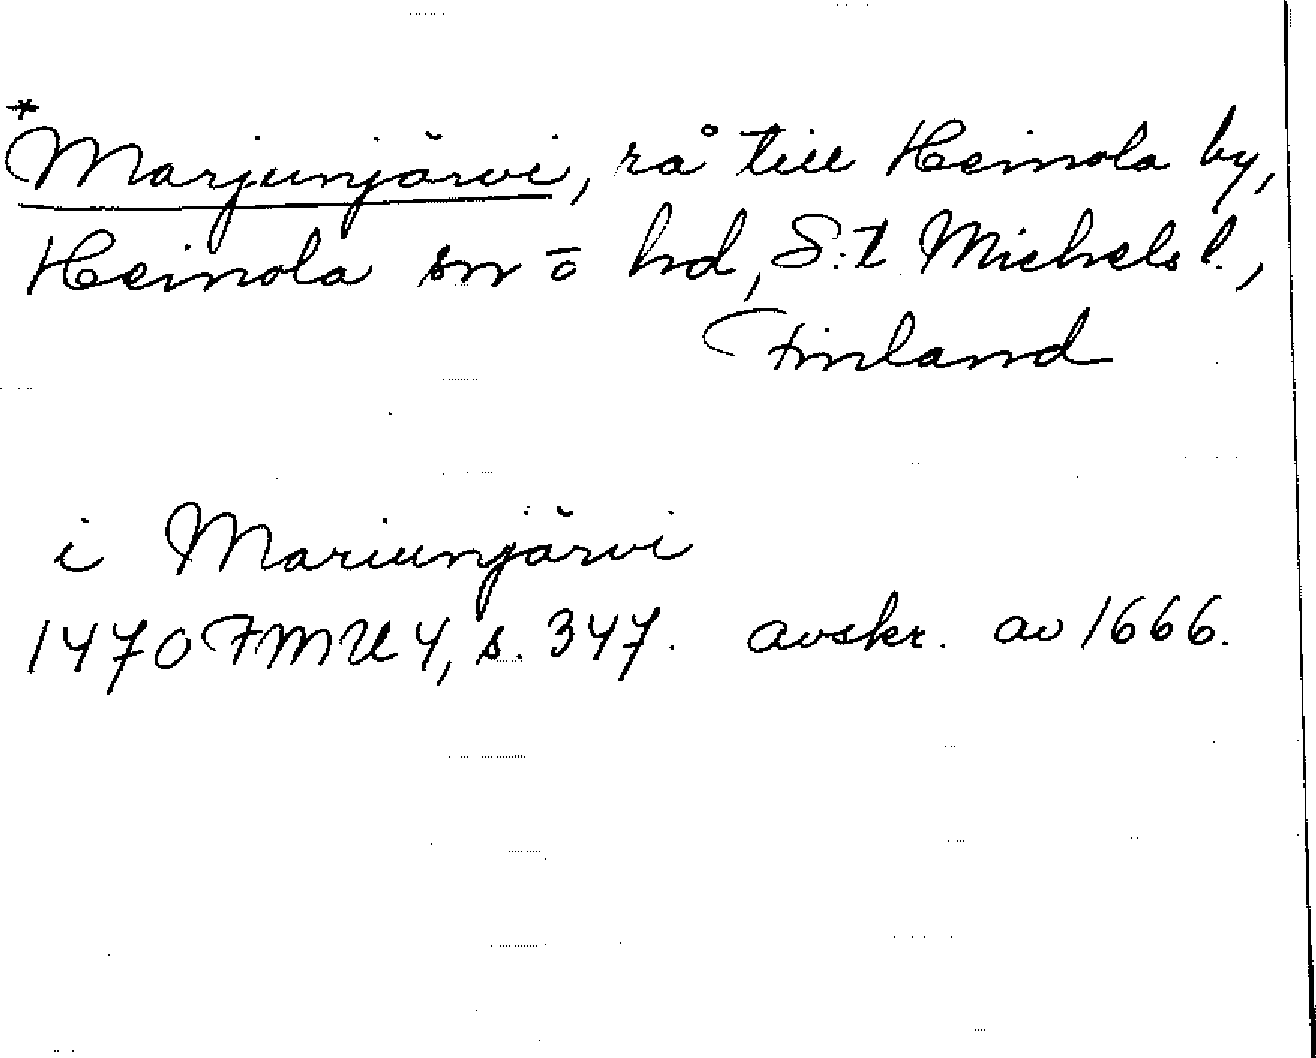 *
Marjunjärvi, rå till Heinola by,
Heinola sn o hd, S:t Michels l.,
Finland
i Mariunjärvi
1470 FMU 4, s. 347. avskr. av 1666.